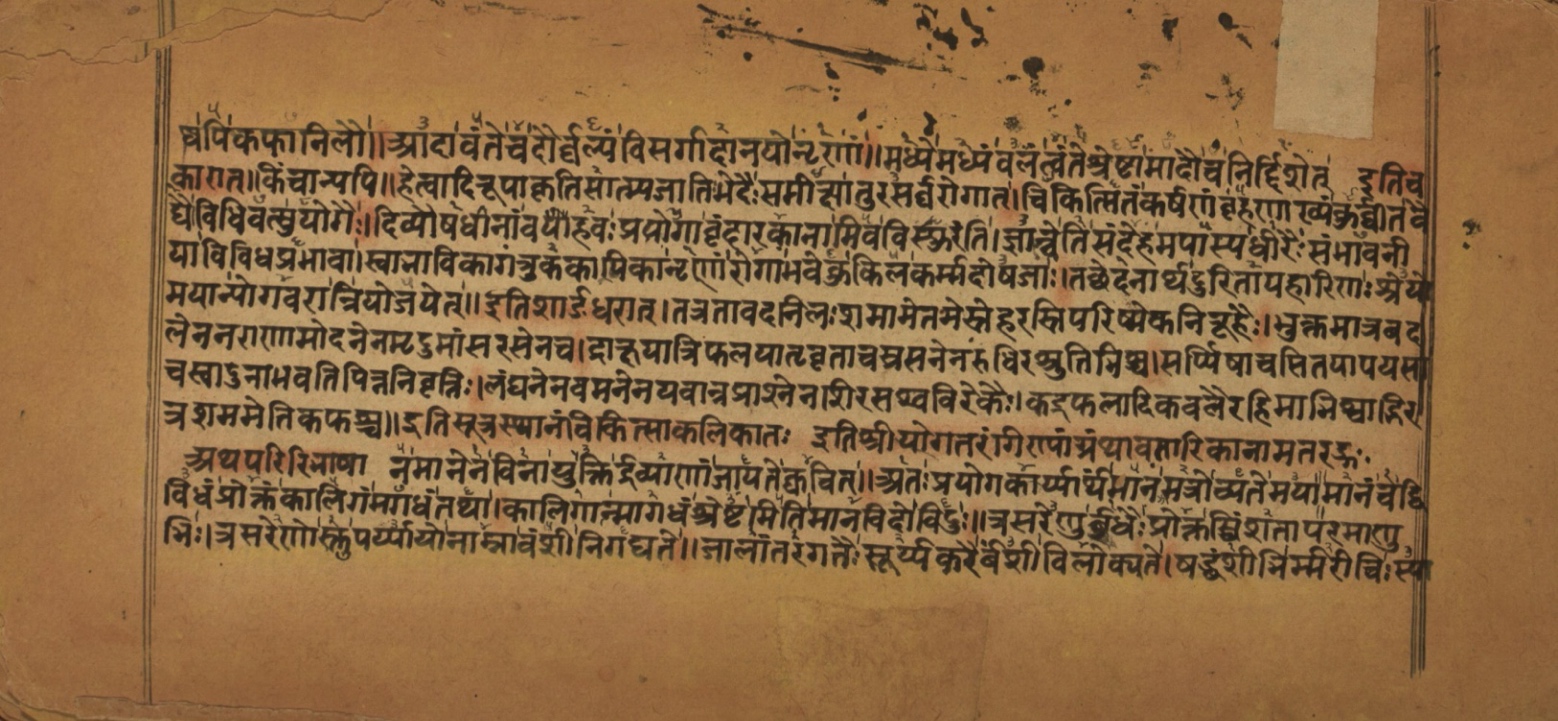 ष्वपि कफानिलौ॥ आदावंते च दौर्बल्यं विसर्गादानयोर्नृणां॥ मध्ये मध्यं बलं त्वंते श्रेष्टामादौ च निर्द्दिशेत् इति च
कारात्॥ किंचान्यपि॥ हेत्वादिरूपाकृतिसात्म्यजातिभेदैः समीक्ष्यातुरसर्वरोगात्। चिकित्सितं कर्षणबृंहणाख्यं कुर्वीत वै
द्यो विधिवत्सुयोगैः॥ दिव्यौषधीनां बहवः प्रयोगा वृंदारकानामिव विस्फुरंति। ज्ञात्वेति संदेहमपास्य धीरैः संभावनी
या विविधप्रभावा। स्वाभाविकागंतुककायिकांतरा रोगा भवेयुः किल कर्म्मदोषजाः। तच्छेदनार्थं दुरितापहारिणः श्रेयो
मयान्योगवरान्नियोजयेत्॥ इति शार्ङ्गधरात्। तत्र तावदनिलः शमामेतमेस्नेहरस्निपरिष्येकनिरूहैः। भुक्तमात्रबद
लेननराणामोदनेन मृदुमांसरसेन च। द्राक्षया त्रिफलया तृवृता च स्रसनेन रुधिरस्रुतिभिश्च। सर्प्पिषा च सितया पयसा
च स्वादुना भवति पित्तनिवृत्तिः। लंघनेन वमनेन यवान्नप्राशनेन शिरसश्च विरेकैः। कट्फलादिकवलैरहिमाभिश्चाद्भिर
त्र शममेति कफश्च॥ इति सूत्रस्थानं चिकित्साकलिकातः इति श्रीयोगतरंगीण्यां ग्रंथावतारिकानामतरङ्गः
अथ परिरिभाषा न मानेन विना युक्तिर्द्रव्याणां जायते क्वचित्॥ अतः प्रयोगकार्य्यार्थं मानमत्रोच्यते मया मानं च द्वि
विधं प्रोक्तं कालिंगं मागधं तथा। कालिंगान्मागधं श्रेष्टमिति मानविदो विदुः॥ त्रसरेणुर्बुधैः प्रोक्तस्त्रिंशता परमाणु
भिः। त्रसरेणोस्तु पर्य्यायो नाम्ना वंशी निगद्यते॥ जालांतरगतैः सूर्य्यकरैर्वंशी विलोक्यते। षड्वंशीभिर्म्मरीचिः स्या